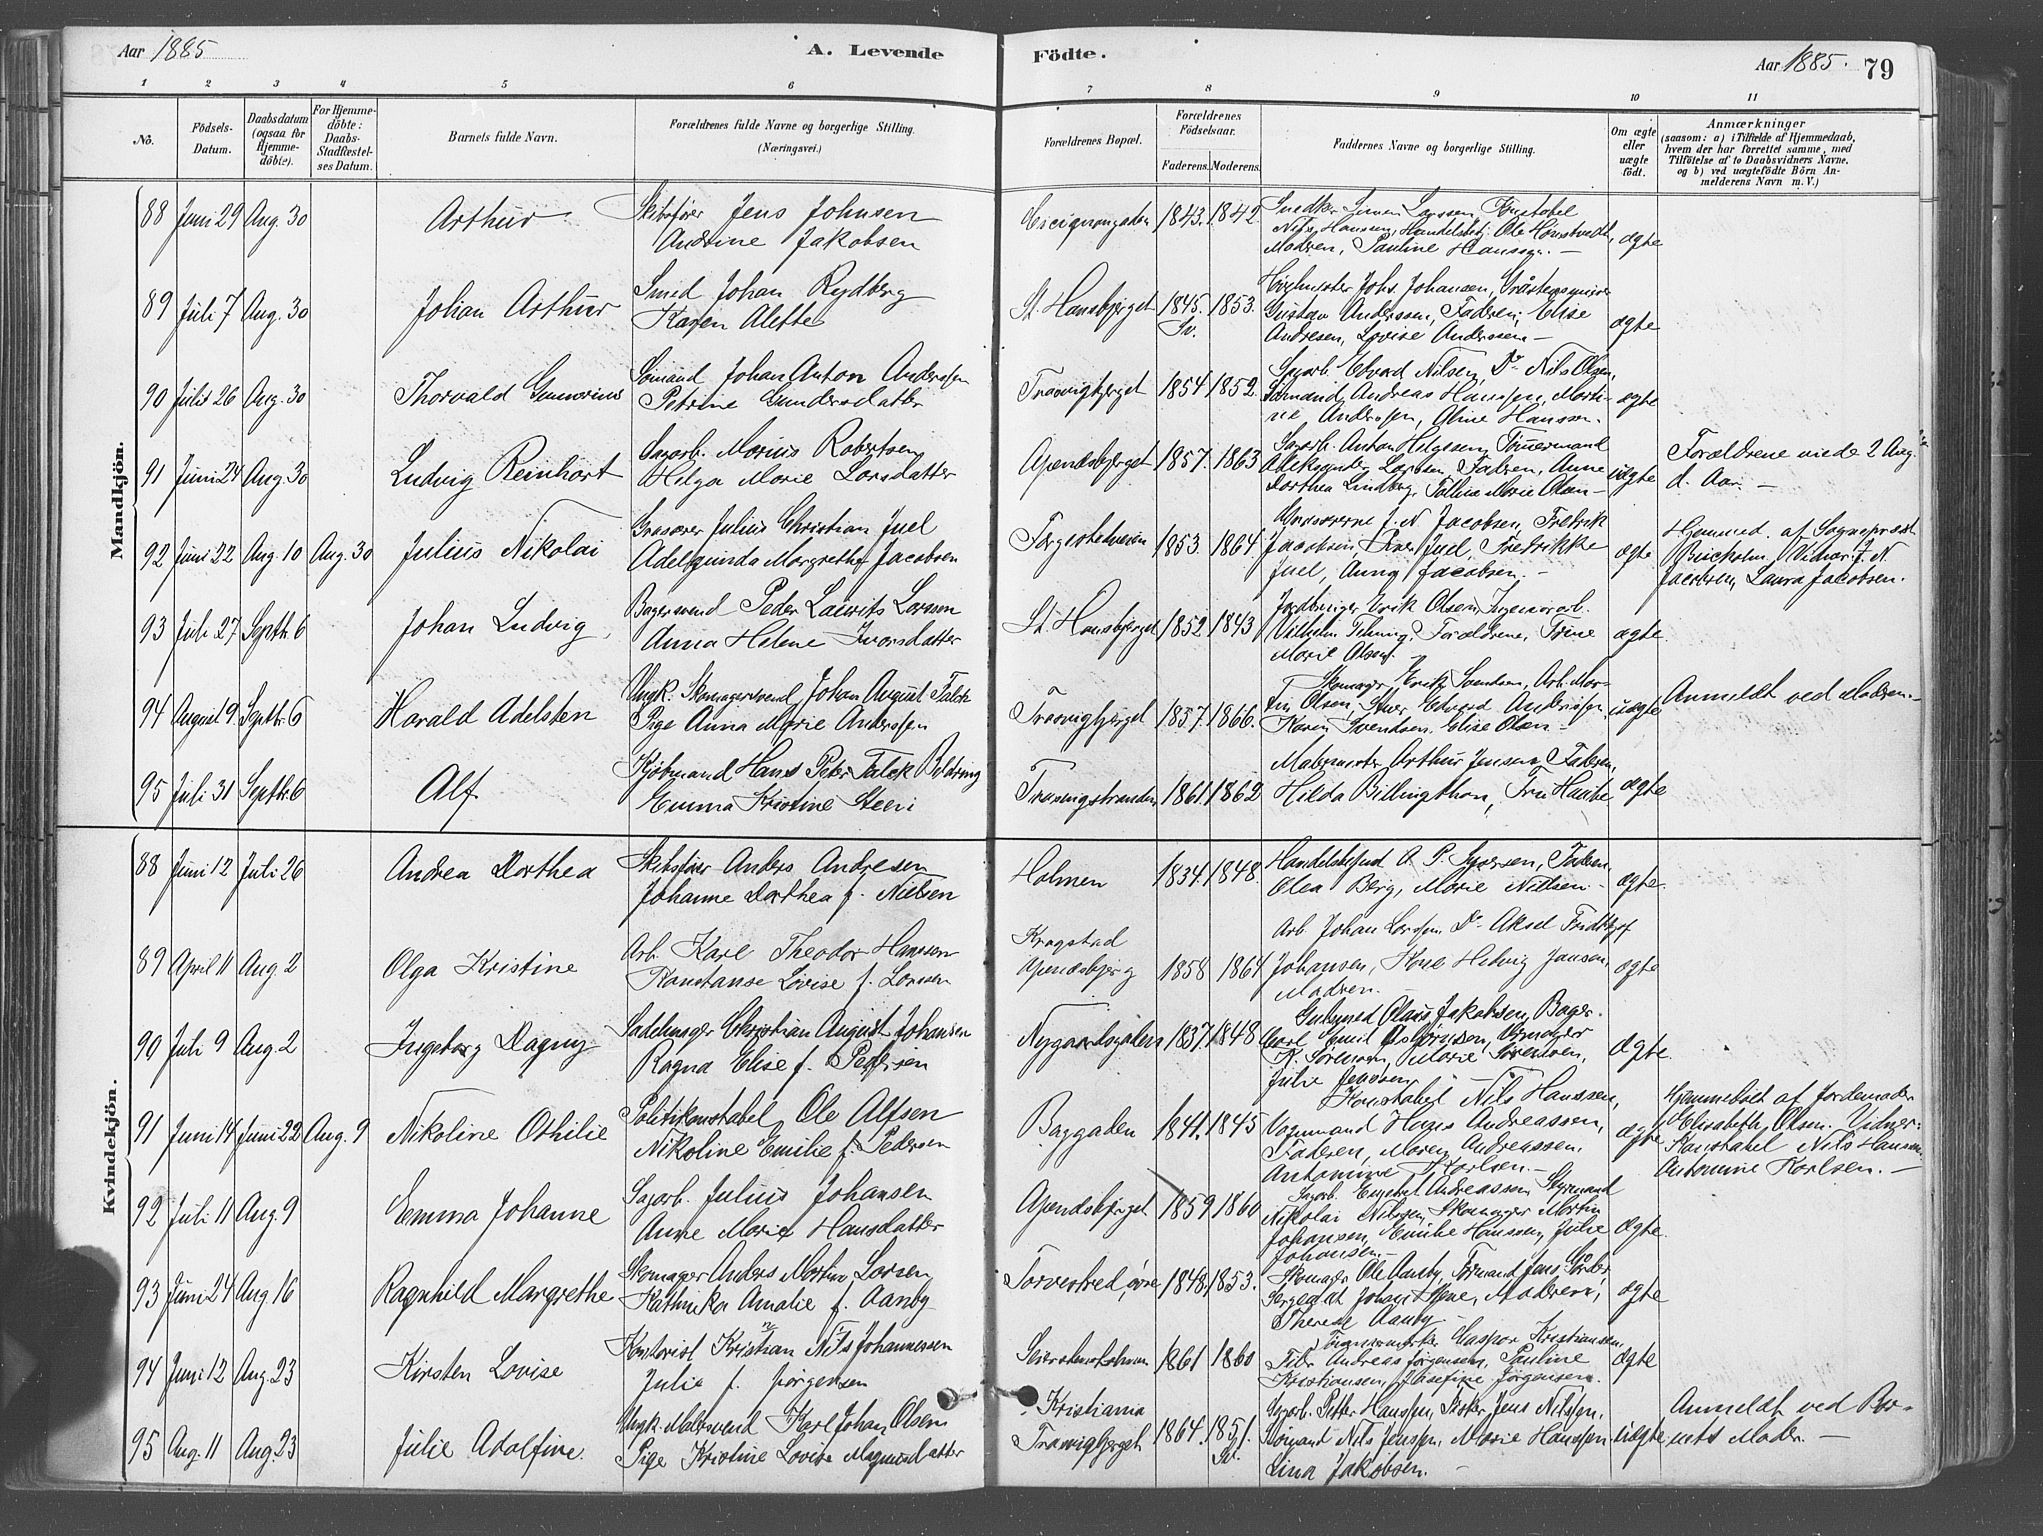 Aar 1885
A. Levende
Födte.
Aar 1885. 79
1 2 3 4 5 6 7 8 9 10 11
No.
Födsels-Datum.
Daabsdatum (ogsaa for Hjemme-döbte).
For Hjemme-döbte: Daabs-Stadfæstel-ses Datum.
Barnets fulde Navn.
Forældrenes fulde Navne og borgerlige Stilling.
(Næringsvei.)
Forældrenes Bopæl.
Forældrenes Födselsaar.
Faderens. Moderens.
Faddernes Navne og borgerlige Stilling.
Om ægte eller uægte födt.
Anmærkninger
(saasom: a) i Tilfælde af Hjemmedaab, hvem der har forrettet samme, med Tilföielse af to Daabsvidners Navne. og b) ved uægtefödte Börn An-melderens Navn m. V.)
Mandkjön.
88 Juni 29 Aug. 30 Arthur Skibsfører Jens Johnsen
Andrine Jakobsen
1843. 1842
Nils Hansen, Handelsbetj. Ole
Madren, Pauline
ægte
89 Juli 7 Aug. 30 Johan Arthur Smed Johan Rydberg
Karen Alette
St. Hansbjerget 1845. Sv. 1853.
Johs. Johansen,
Gustav Anderssen, Fadren, Elise
Andresen, Lovise Anderssen —
ægte
90 Juli 26 Aug. 30 Thorvald Sømand Johan Anton Anderssen
Petrine Gundersdatter
Traavigbjerget 1854 1852
Sagarb. Edvard Nilsen, Do Nils Olsen,
Sømand Andreas Hanssen, Marti-
ne Anderssen, Aline Hanssen.
ægte
91 Juni 24 Aug. 30 Ludvig Reinhart Sagarb. Marius Robertsen
Helga Marie Larsdatter
Apenæsbjerget 1857. 1863
Sagarb. Anton Helgesen, Tømmermand
Aleksander Larsen, Fadren, Anne
Dorthea Lindberg, Marie Olsen —
uægte
Forældrene viede 2 Aug.
d. Aar. —
92 Juni 22 Aug. 10 Aug. 30 Julius Nikolai Grosserer Julius Christian Juel
Adelgunda Margrethe Jacobsen
Færgestedveien 1853 1864
Grossererne J. N. Jacobsen, Fredrik
Jacobsen, Juel, Fredrikke
Juel, Anna Jacobsen. —
ægte
Hjemmed. af Sogneprest
J. N.
Jacobsen, Laura Jacobsen.
93 Juli 27 Septb. 6 Johan Ludvig Bagersvend Peder Laurits Larssen
Anna Helene Ivarsdatter
St. Hansbjerget 1852 1843
Erik Olsen,
Vilhelm Forældrene, Trine
Marie Olsen.
ægte
94 August 9 Septbr. 6 Harald Adelsten Ungk. Skomagersvend Johan August Falck
Pige Anna Marie Anderssen
Traavigbjerget 1857. 1866.
Skomager Erik Svendsen, Arb. Mar-
tin Olsen, Edvard Anderssen,
Karen Svendsen, Elise Olsen —
uægte
Anmeldt ved Madren. —
95 Juli 31 Septbr. 6 Alf Kjøbmand Hans Peter Falck
Emma Kristine Steen
Traavigstranden 1861. 1862
Malermester Arthur Jensen, Fadren,
Hilda Fru
ægte
Kvindekjön.
88 Juni 12 Juli 26 Andrea Dorthea Skibsfører Anders Andresen
Johanne Dorthea f. Nielsen
Holmen 1834. 1848.
A. P. Fadren,
Olea Berg, Marie Nielsen —
ægte
89 April 11 Aug. 2 Olga Kristine Arb. Karl Theodor Hanssen
Konstanse Lovise f. Larssen
Kragstad
Apenæsbjerg 1858 1864
Arb. Johan Larssen, Do Aksel Fridthjof
Johansen, Kone Hedvig Jansen,
Madren.
ægte
90 Juli 9 Aug. 2 Ingeborg Dagny Sadelmager Christian August Johansen
Ragna Elise f. Pedersen
1837. 1848
Olaus Jakobsen, Bager
Carl Emil
K. Sørensen, Marie Sørensen,
Julie Jenssen
ægte
91 Juni 14 Juni 22 Aug. 9 Nikoline Othilie Politikonstabel Ole Alfsen
Nikoline Emilie f. Pedersen
Baggaden 1841. 1845
Konstabel Nils Hanssen,
Vognmand Hans Andreassen,
Fadren, Maren Andreassen,
Antonine Karlsen. —
ægte
Hjemmedöbt af Jordemoder
Elisabeth Olsen. Vidner:
Konstabel Nils Hansen,
Antonine Karlsen. —
92 Juli 11 Aug. 9 Emma Johanne Sagarb. Julius Johansen
Anne Marie Hansdatter
Apenæsbjerget 1859 1860
Sagarb. Engebret Andreassen, Styrmand
Nikolai Nilssen, Skomager Martin
Johansen, Emilie Hanssen, Julie
Johansen. —
ægte.
93 Juni 24 Aug. 16 Ragnhild Margrethe Skomager Anders Martin Larsen
Kathinka Amalie f. Aanby
Torvestred, øvre 1848. 1853.
Skomager Ole Aanby, Jens
Sergeant Johan Madren,
Therese Aanby —
ægte
94 Juni 12 Aug. 23 Kirsten Lovise Kontorist Kristian Nils Johannessen
Julie f. Jørgensen
1861 1860
Caspar Kristiansen,
Andreas Jørgensen, Pauline
Kristiansen, Josefine Jørgensen.
ægte
95 Aug. 11 Aug. 23 Julie Adolfine. Ungk. Malersvend Karl Johan Olsen
Pige Kristine Lovise Magnusdatter
Kristiania
Traavigbjerget 1864. 1851. Sv.
Sagarb. Petter Hanssen, Jens Nilssen,
Sømand Nils Jenssen, Marie Hanssen
Lina Jakobsen. —
uægte
Anmeldt ved Bar-
nets Moder. —